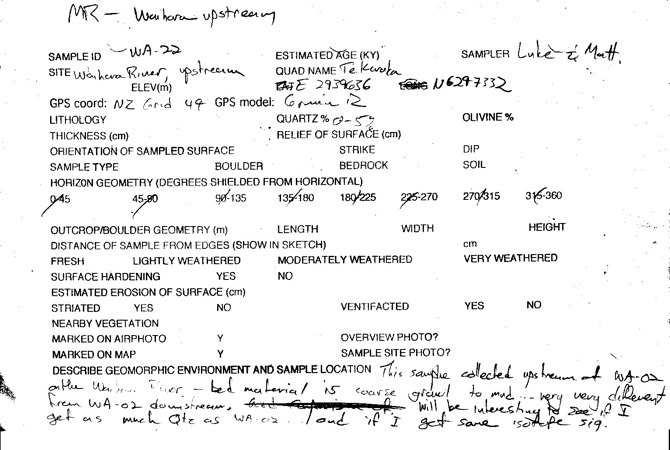 MR - Waihora upstream
SAMPLE ID WA-22 ESTIMATED AGE (KY) SAMPLER Luke & Matt.
SITE Waihora River, upstream QUAD NAME Te Karaka
ELEV(m) E 2939636 N6297332
GPS coord: NZ Grid 49 GPS model: Garmin 12
LITHOLOGY QUARTZ % 0-5% OLIVINE %
THICKNESS (cm) RELIEF OF SURFACE (cm)
ORIENTATION OF SAMPLED SURFACE STRIKE DIP
SAMPLE TYPE BOULDER BEDROCK SOIL
HORIZON GEOMETRY (DEGREES SHIELDED FROM HORIZONTAL)
0-45 45-90 90-135 135-180 180-225 225-270 270-315 315-360
OUTCROP/BOULDER GEOMETRY (m) LENGTH WIDTH HEIGHT
DISTANCE OF SAMPLE FROM EDGES (SHOW IN SKETCH) cm
FRESH LIGHTLY WEATHERED MODERATELY WEATHERED VERY WEATHERED
SURFACE HARDENING YES NO
ESTIMATED EROSION OF SURFACE (cm)
STRIATED YES NO VENTIFACTED YES NO
NEARBY VEGETATION
MARKED ON AIRPHOTO Y OVERVIEW PHOTO?
MARKED ON MAP Y SAMPLE SITE PHOTO?
DESCRIBE GEOMORPHIC ENVIRONMENT AND SAMPLE LOCATION This sample collected upstream of WA-02
on the Waihora River - bed material is coarse gravel to mud... very very different
from WA-02 downstream, will be interesting to see if I
get as much Qtz as WA-02... and if I get same isotope sig.